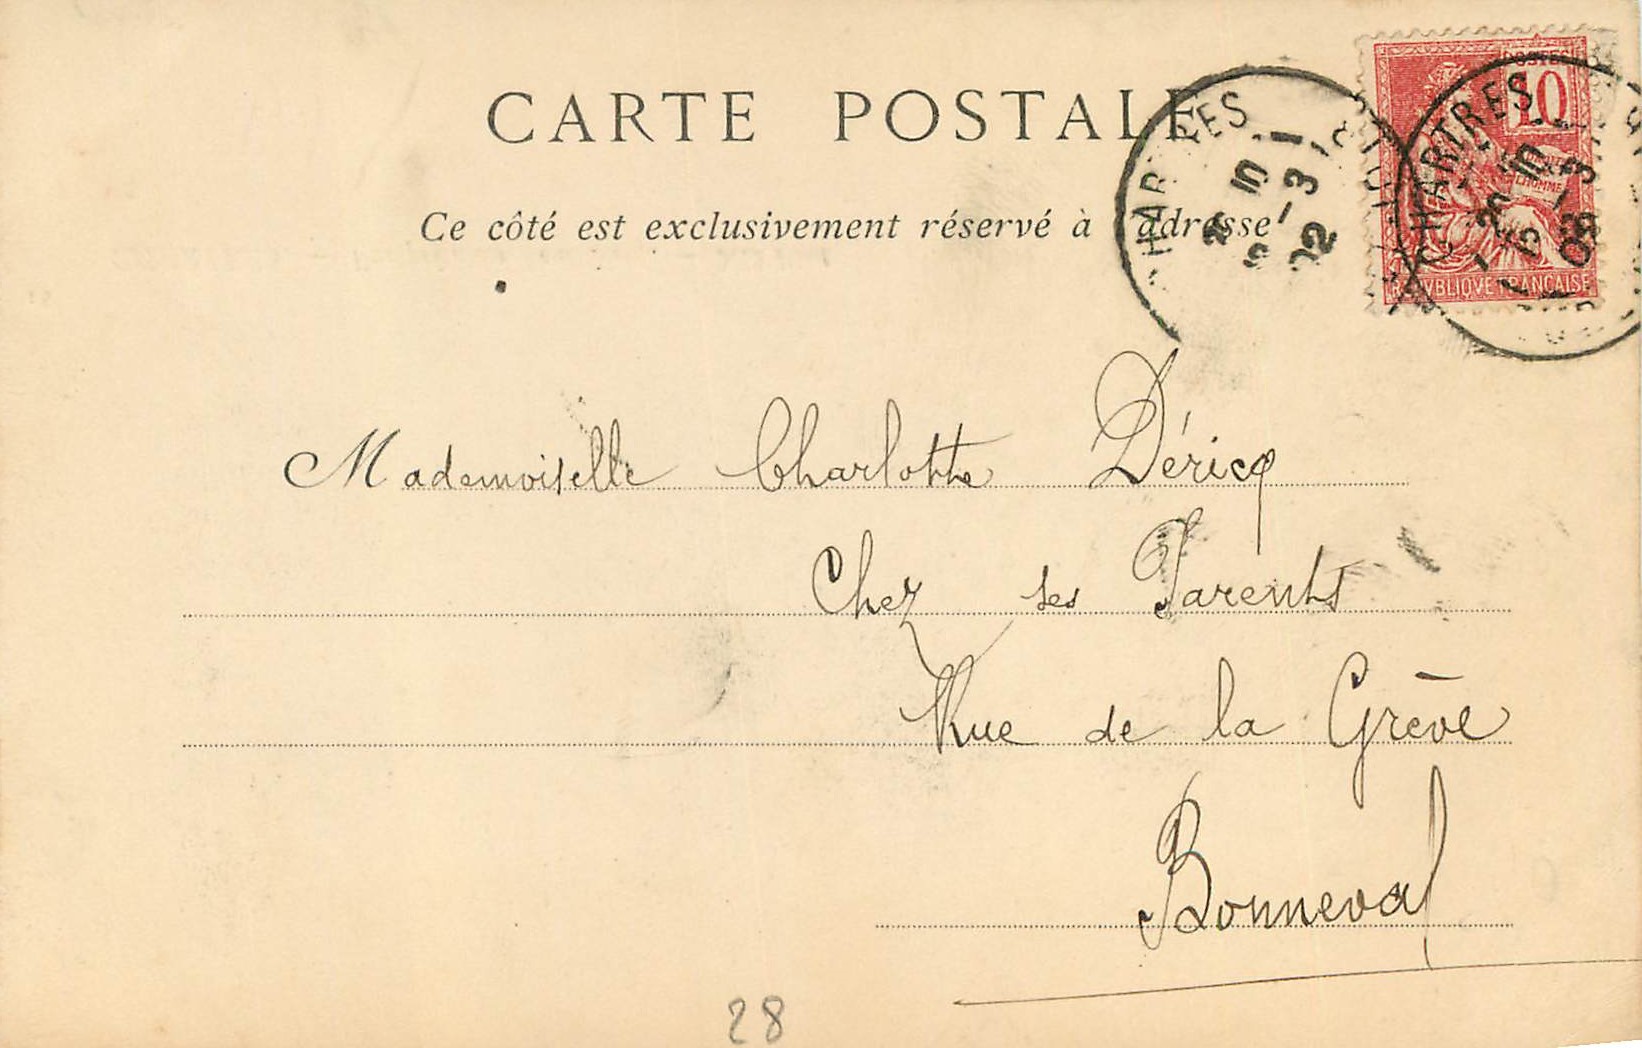 CARTE POSTALE
Ce côté est exclusivement réservé à l'adresse
CHARTRES
3
02
CHARTRES
POSTES
10
DROITS DE L'HOMME
REPVBLIQVE FRANÇAISE
Mademoiselle Charlotte Déricq
Chez ses Parents
Rue de la Grève
Bonneval
28